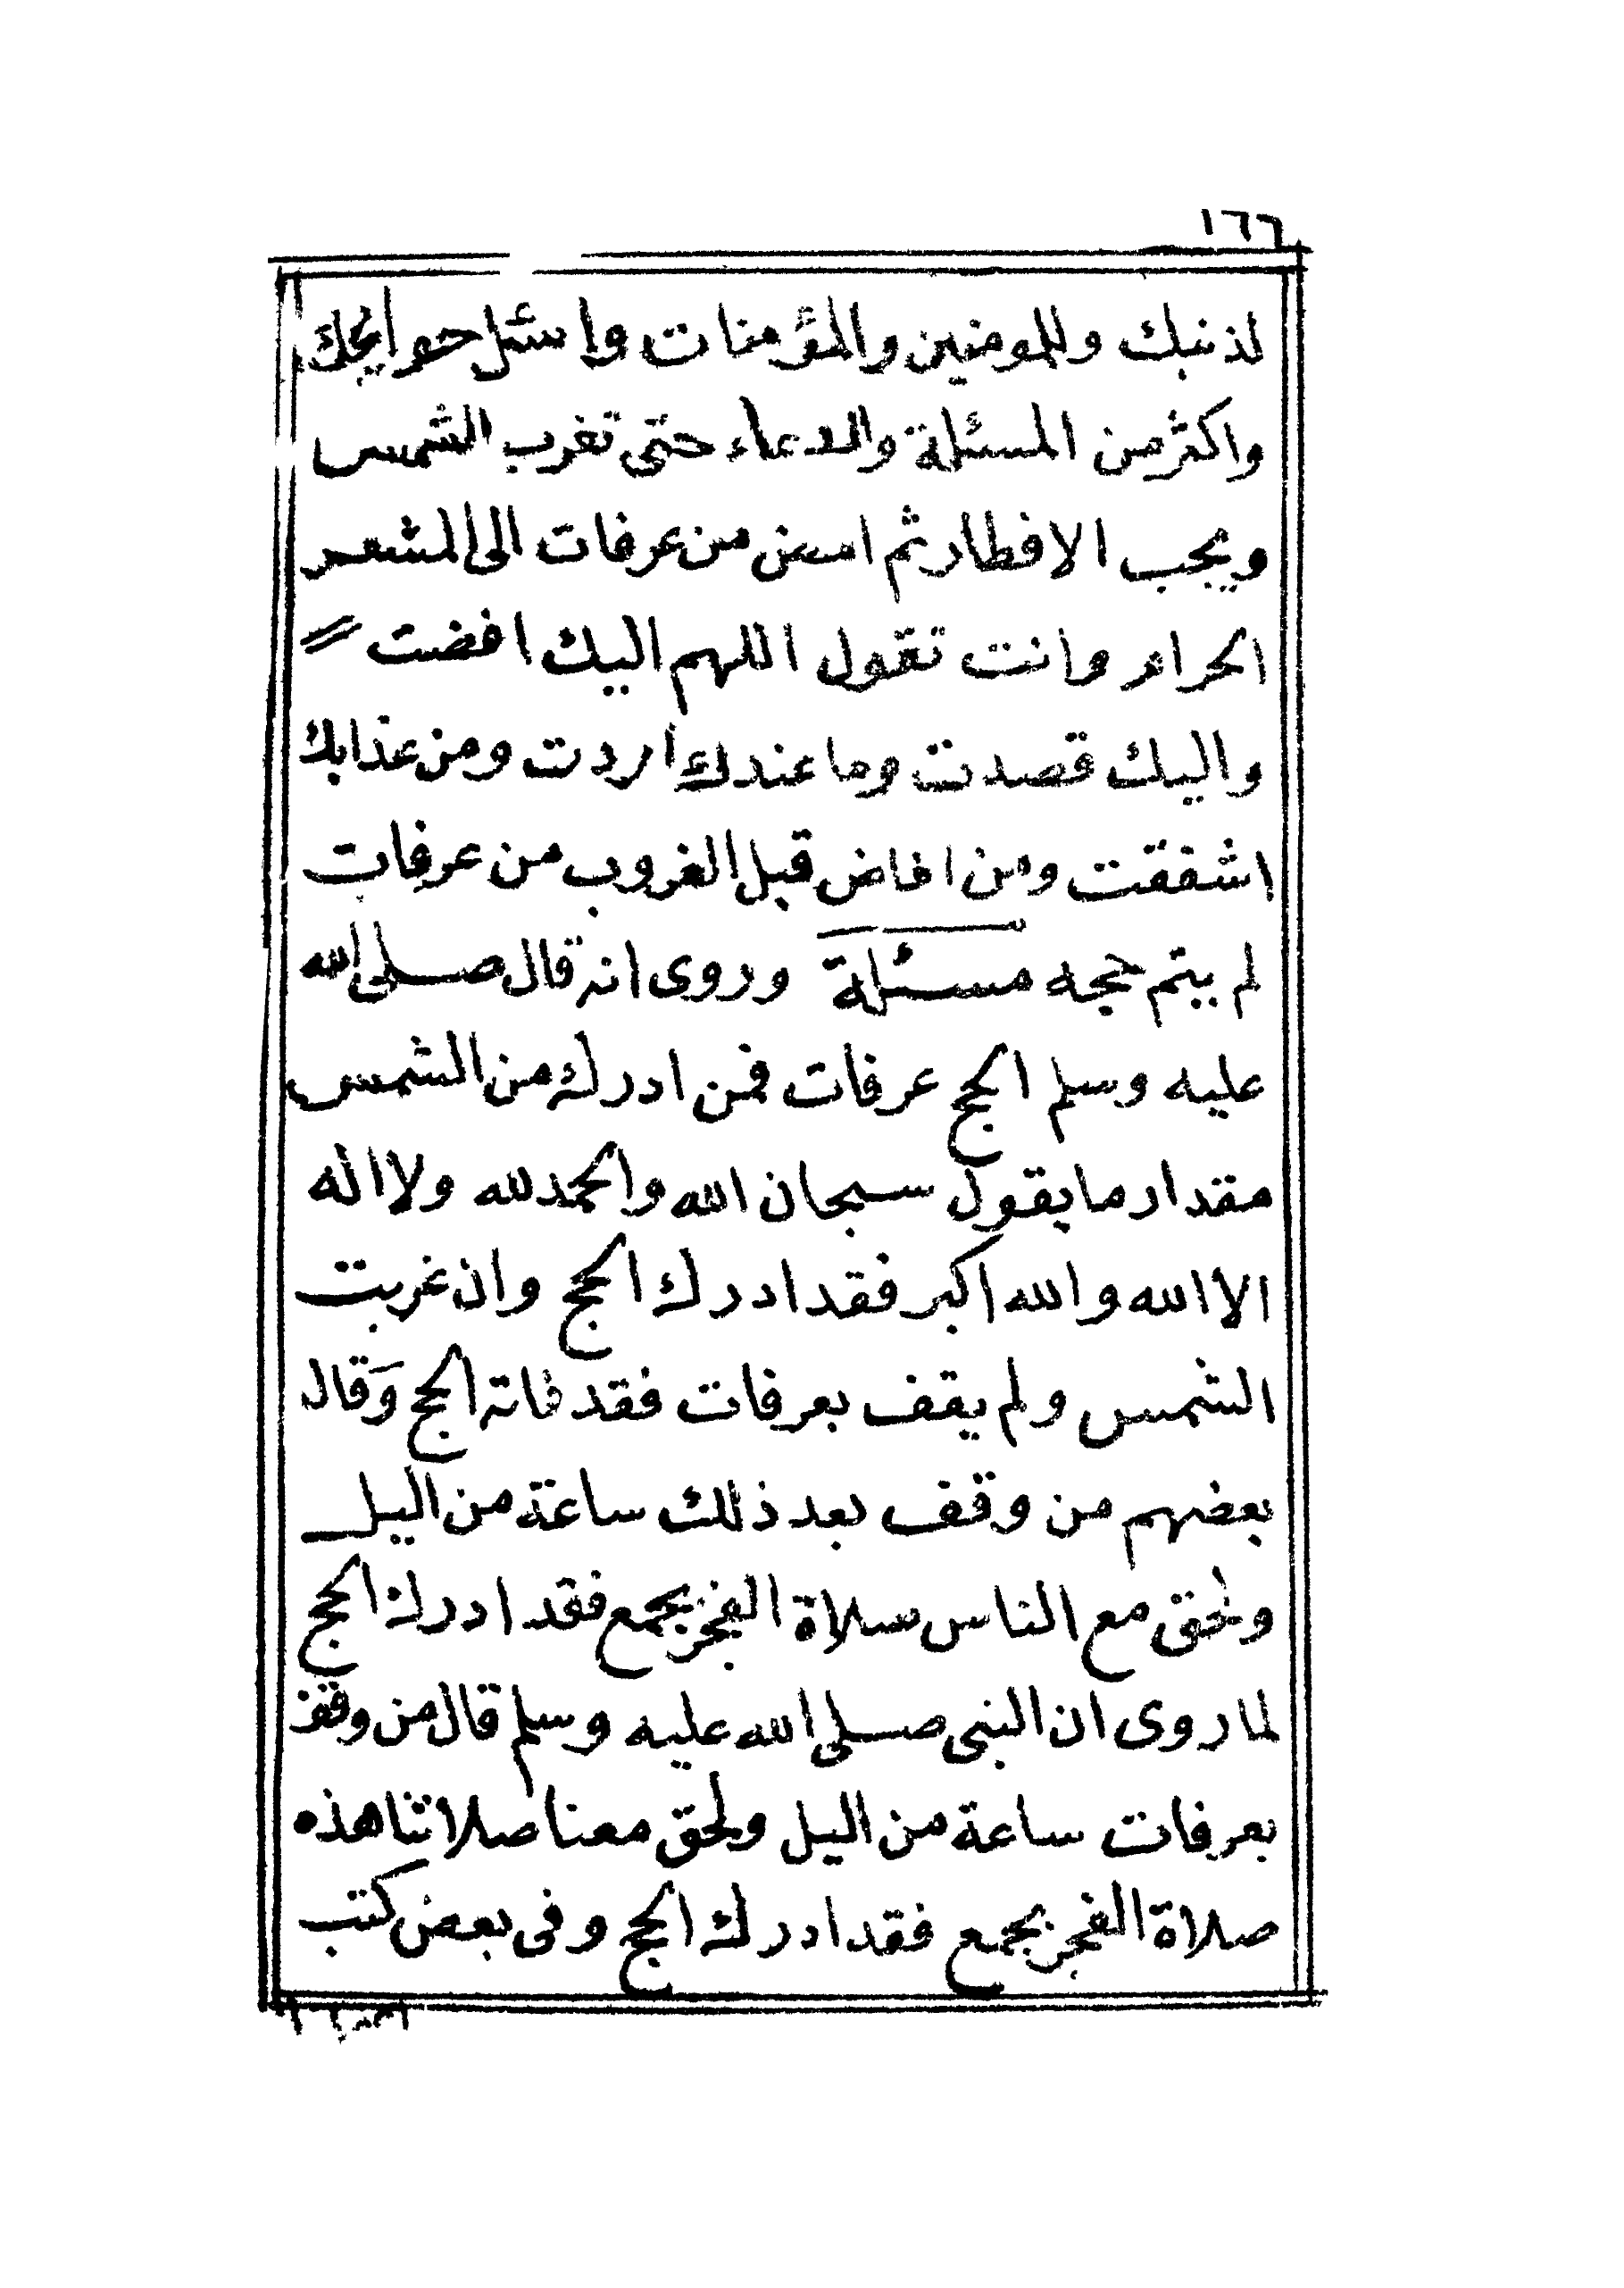 ١٦٦
لذنبك وللمومنين والمؤمنات واسئل حوايجك
واكثر من المسئلة والدعاء حتى تغرب الشمس
ويجب الافطار ثم امض من عرفات الى المشعر
الحرام وانت تقول اللهم اليك افضت
واليك قصدت وما عندك اردت ومن عذابك
اشفقت ومن افاض قبل الغروب من عرفات
لم يتم حجه مسئلة وروى انه قال صلى الله
عليه وسلم الحج عرفات فمن ادرك من الشمس
مقدار ما يقول سبحان الله والحمد لله ولا اله
الا الله والله اكبر فقد ادرك الحج وان غربت
الشمس ولم يقف بعرفات فقد فاته الحج وقال
بعضهم من وقف بعد ذلك ساعة من اليل
ولحق مع الناس سلاة الفجر بجمع فقد ادرك الحج
لما روى ان النبى صلى الله عليه وسلم قال من وقف
بعرفات ساعة من اليل ولحق معنا صلاتنا هذه
صلاة الفجر بجمع فقد ادرك الحج وفى بعض كتب